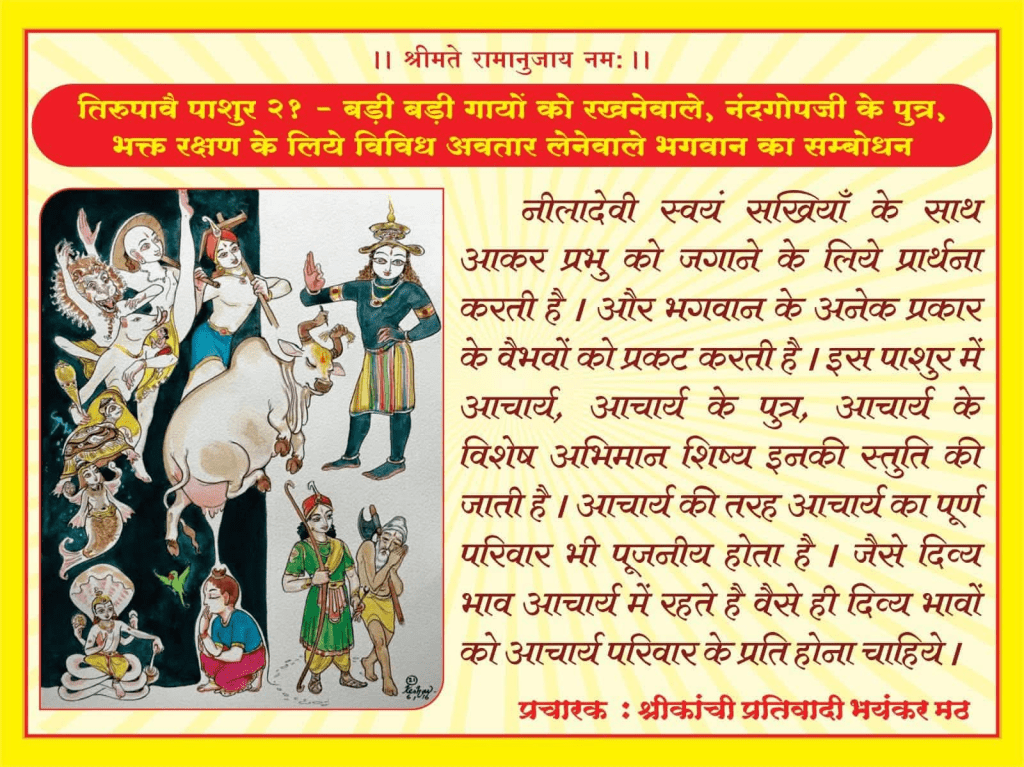 ।। श्रीमते रामानुजाय नम: ।।
तिरुपावै पाशुर २१ - बड़ी बड़ी गायों को रखनेवाले, नंदगोपजी के पुत्र,
भक्त रक्षण के लिये विविध अवतार लेनेवाले भगवान का सम्बोधन
नीलादेवी स्वयं सखियाँ के साथ
आकर प्रभु को जगाने के लिये प्रार्थना
करती है । और भगवान के अनेक प्रकार
के वैभवों को प्रकट करती है । इस पाशुर में
आचार्य, आचार्य के पुत्र, आचार्य के
विशेष अभिमान शिष्य इनकी स्तुति की
जाती है । आचार्य की तरह आचार्य का पूर्ण
परिवार भी पूजनीय होता है । जैसे दिव्य
भाव आचार्य में रहते है वैसे ही दिव्य भावों
को आचार्य परिवार के प्रति होना चाहिये ।
प्रचारक : श्रीकांची प्रतिवादी भयंकर मठ
21